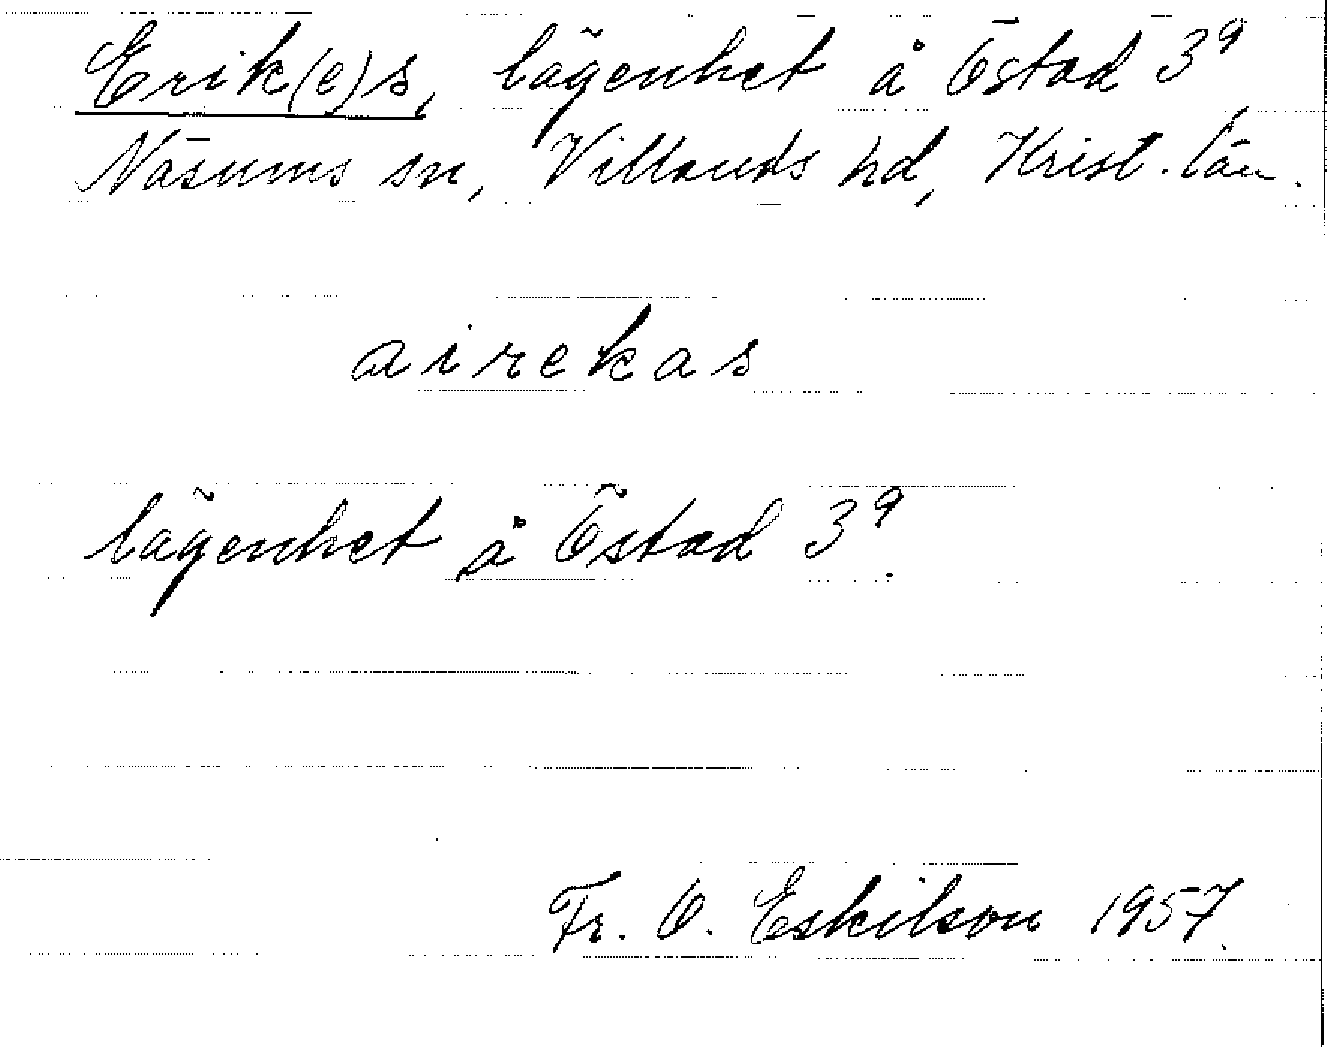 Erik(e)s, lägenhet å Östad 3⁹
Näsums sn, Villands hd, Krist. län.
airekas
lägenhet å Östad 3⁹.
Fr. O. Eskilson 1957.